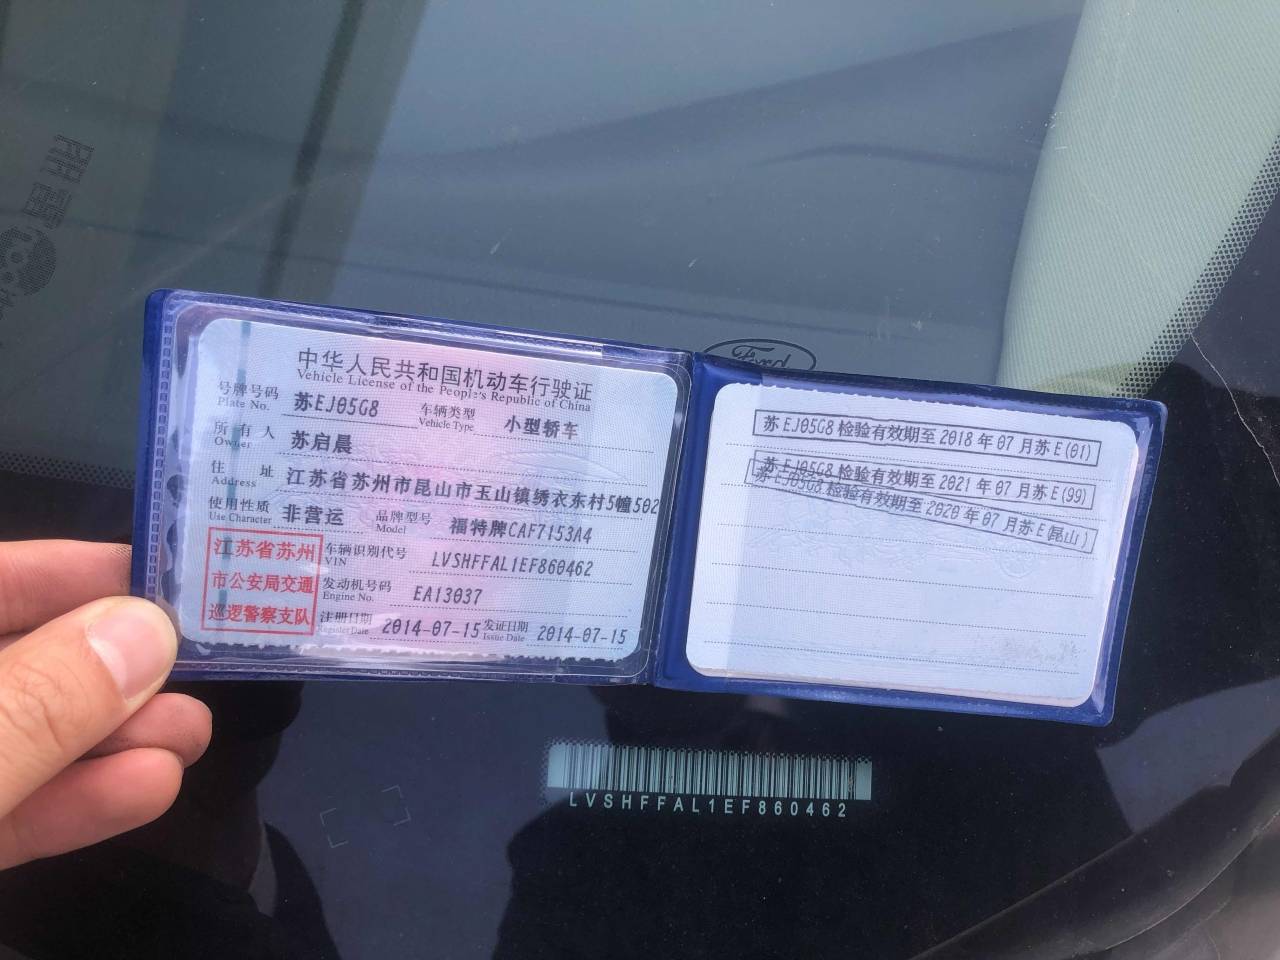 Ford
中华人民共和国机动车行驶证
Vehicle License of the People's Republic of China
号牌号码 苏EJ05G8 车辆类型 小型轿车
Plate No. Vehicle Type
所有人 苏启晨
Owner
住址 江苏省苏州市昆山市玉山镇绣衣东村5幢502
Address
使用性质 非营运 品牌型号 福特牌CAF7153A4
Use Character Model
江苏省苏州
市公安局交通
巡逻警察支队
车辆识别代号 LVSHFFAL1EF860462
VIN
发动机号码 EA13037
Engine No.
注册日期 2014-07-15 发证日期 2014-07-15
Register Date Issue Date
苏EJ05G8检验有效期至2018年07月苏E(01)
苏EJ05G8检验有效期至2021年07月苏E(99)
苏EJ05G8检验有效期至2020年07月苏E(昆山)
LVSHFFAL1EF860462